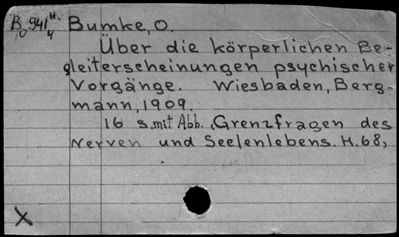 B 941 H. Bumke, O.
Über die körperlichen Be-
gleiterscheinungen psychischer
Vorgänge. Wiesbaden, Berg-
mann, 1909.
16 s. mit Abb. Grenzfragen des
Nerven und Seelenlebens. H. 68,
X